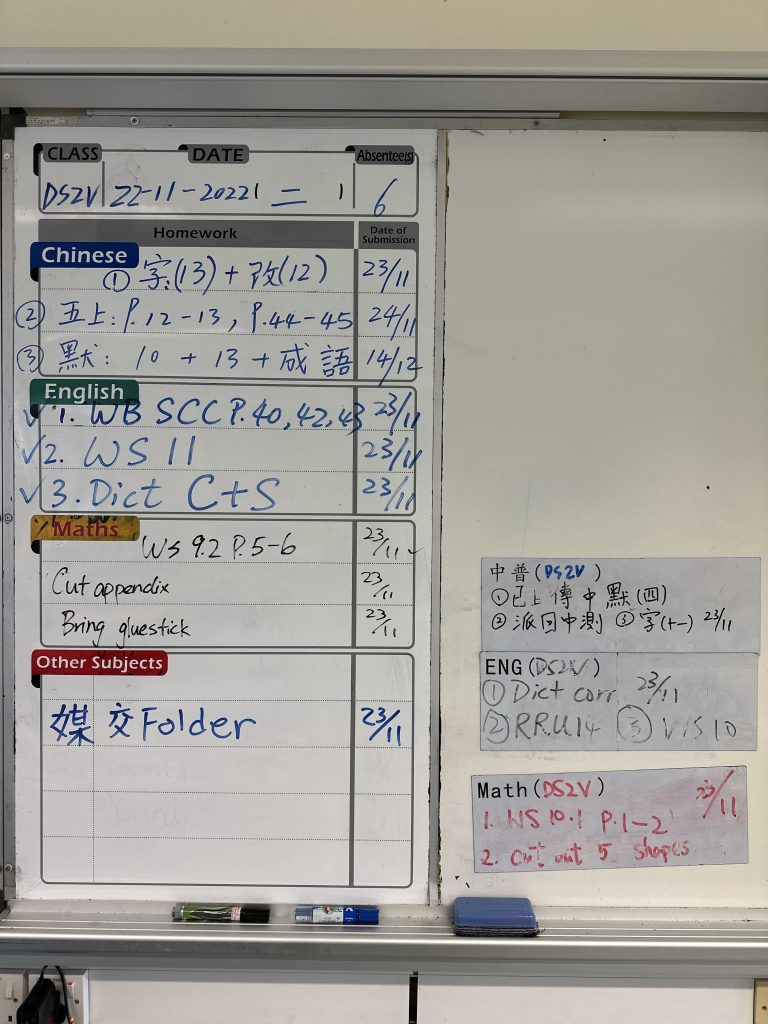 CLASS DATE Absentee(s)
DS2V 22-11-2022 二 6
Homework Date of Submission
Chinese
① 字:(13)+改(12) 23/11
② 五上:P.12-13, P.44-45 24/11
③ 默: 10 + 13 + 成語 14/12
English
✓ 1. WB SCC P.40,42,43 23/11
✓2. WS 11 23/11
✓3. Dict C+S 23/11
Maths
WS 9.2 P.5-6 23/11
Cut appendix 23/11
Bring gluestick 23/11
Other Subjects
媒 交 Folder 23/11
中普(DS2V)
①已上傳中默(四)
②派回中測 ③字(十一) 23/11
ENG(DS2V)
① Dict corr 23/11
② RR.U14 ③ WS 10
Math(DS2V) 23/11
1. WS 10.1 P.1-2
2. cut out 5 shapes